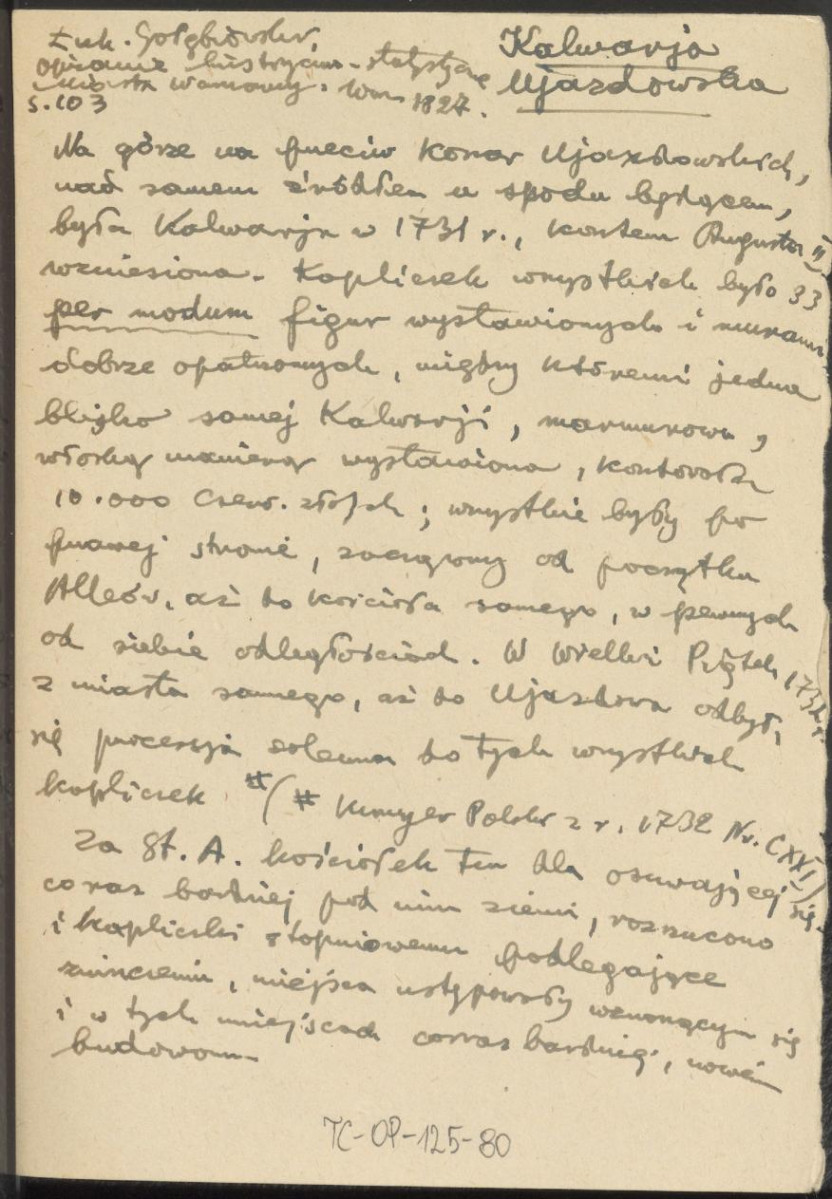 Łuk. Gołębiowski,
Opisanie historyczno-statystyczne
miasta Warszawy. Warsz. 1827.
s. 103
Kalwarja
Ujazdowska
Na górze na przeciw Koszar Ujazdowskich,
nad samem źródłem u spodu będącem,
była Kalwarja w 1731 r., kosztem Augusta II
wzniesiona. Kapliczek wszystkich było 33
per modum figur wystawionych i murami
dobrze opatrzonych, między któremi jedna
blisko samej Kalwarji, marmurowa,
włoską manierą wystawiona, kosztowała
10.000 czerw. złotych; wszystkie były po
prawej stronie, zacząwszy od początku
Alleów, aż do kościoła samego, w pewnych
od siebie odległościach. W Wielki Piątek 1732 r.
z miasta samego, aż do Ujazdowa odbyła
się processja solenna do tych wszystkich
kapliczek #( # Kuryer Polski z r. 1732 Nr. CXXI)
Za St. A. kościołek ten dla osuwającej się
coraz bardziej pod nim ziemi, rozrzucono
i kapliczki stopniowemu podlegające
zniszczeniu, miejsca ustępowały wznoszącym się
i w tych miejscach coraz bardziej, nowym
budowom
TC-OP-125-80